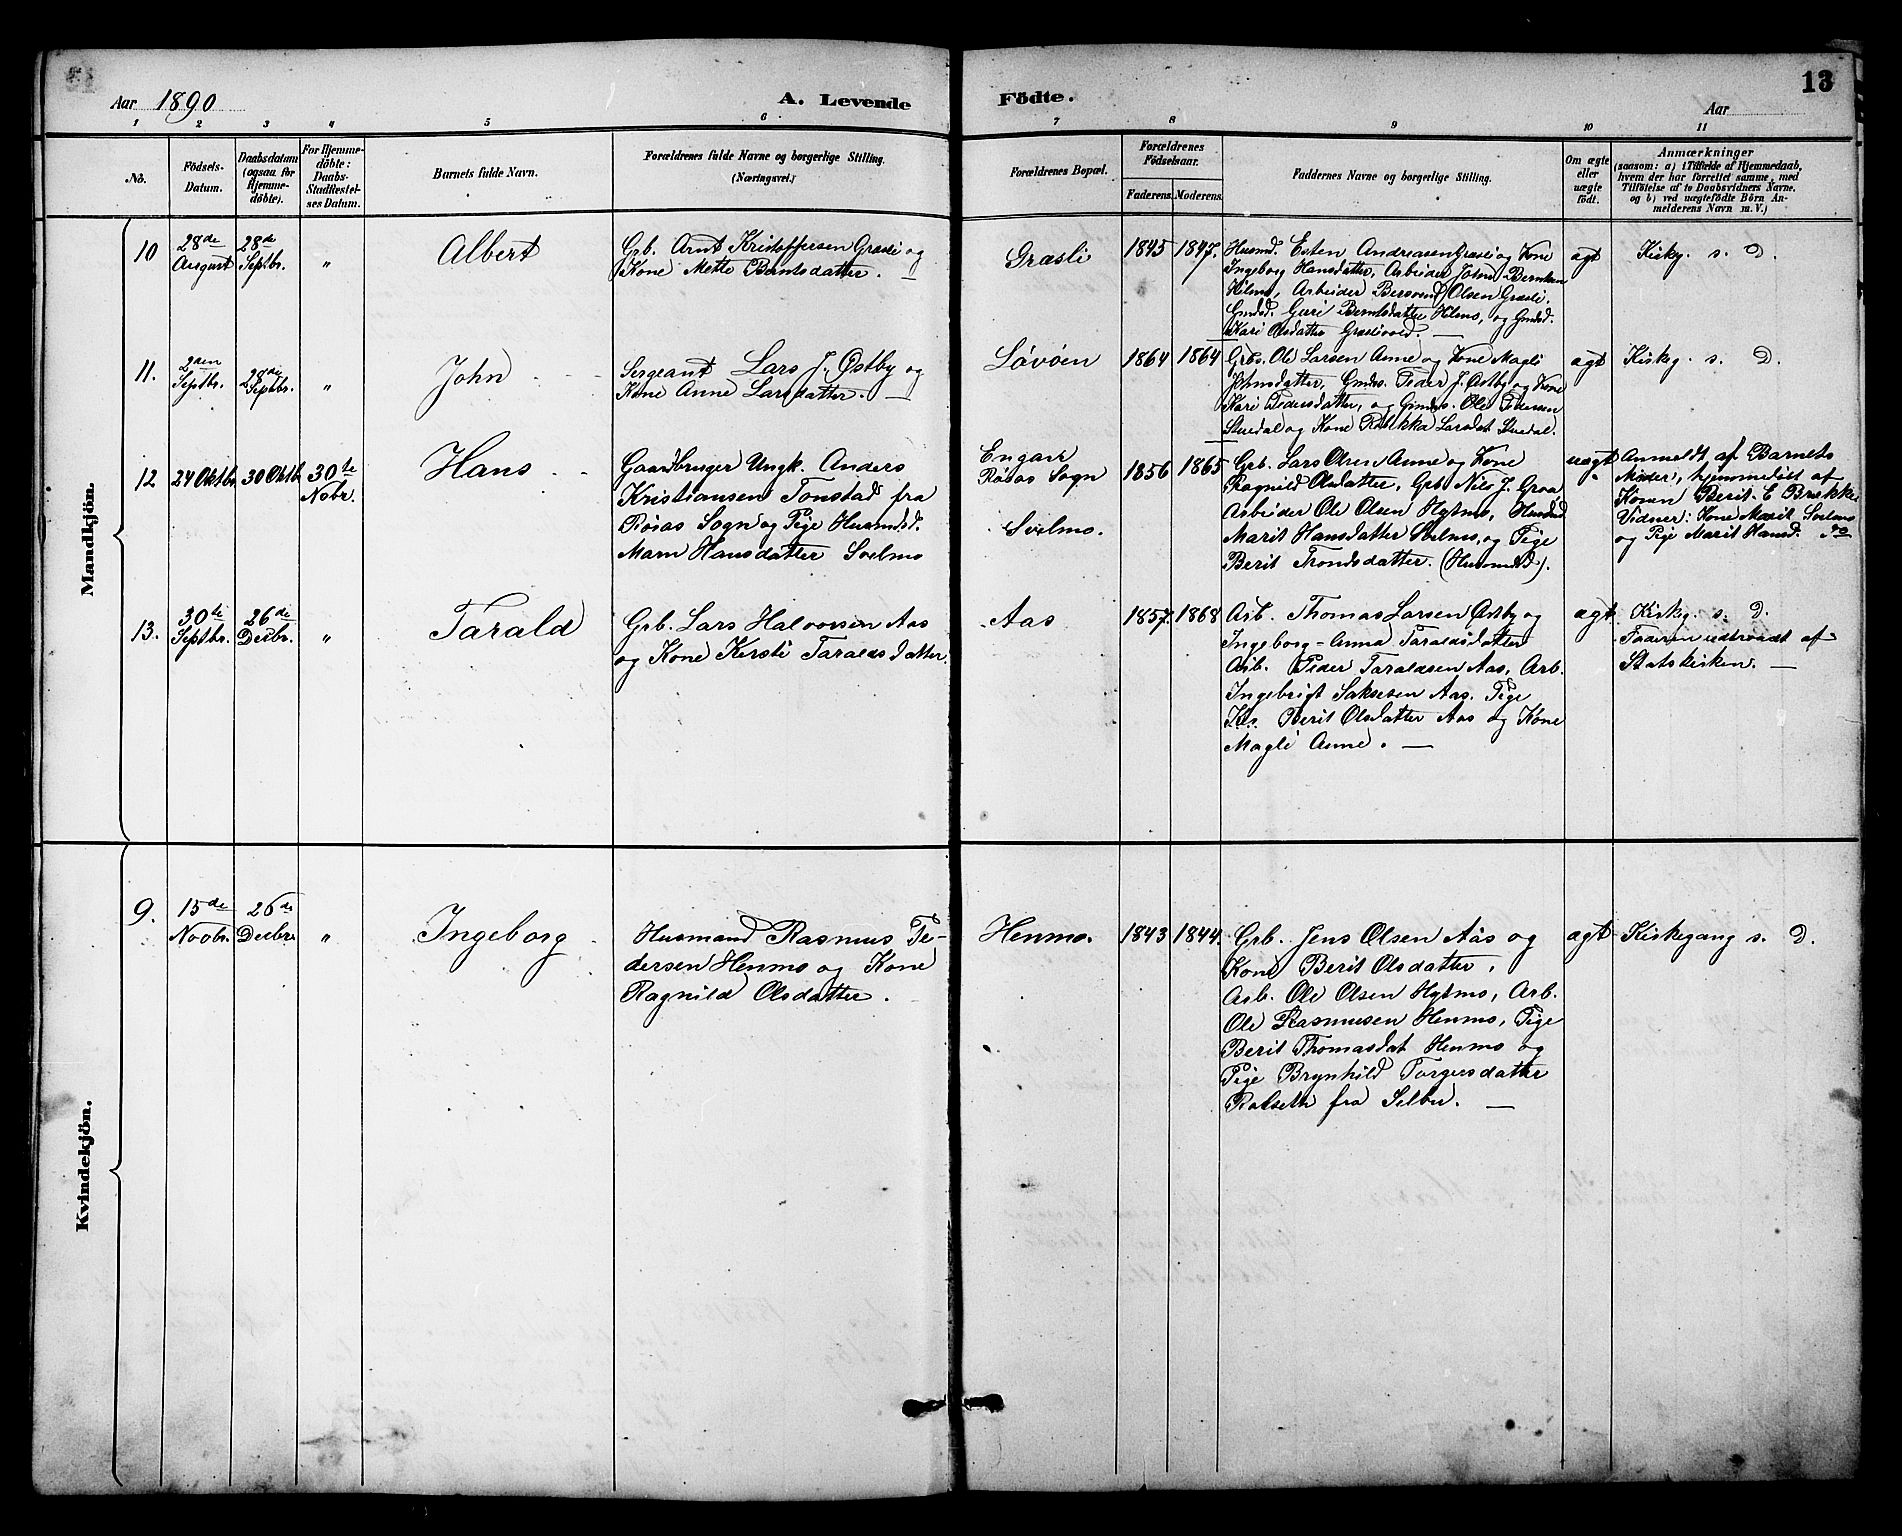 Aar 1890
A. Levende
Födte.
Aar
13
1 2 3 4 5 6 7 8 9 10 11
No.
Födsels-
Datum.
Daabsdatum
(ogsaa for
Hjemme-
döbte).
For Hjemme-
döbte:
Daabs-
Stadfæstel-
ses Datum.
Barnets fulde Navn.
Forældrenes fulde Navne og borgerlige Stilling.
(Næringsvei.)
Forældrenes Bopæl.
Forældrenes
Födselsaar.
Faderens.
Moderens.
Faddernes Navne og borgerlige Stilling.
Om ægte
eller
uægte
født.
Anmærkninger
(saasom: a) i Tilfælde af Hjemmedaab,
hvem der har forrettet samme, med
Tilföielse af to Daabsvidners Navne,
og b) ved uægtefödte Börn An-
melderens Navn m. V.)
Mandkjön.
10
28de
August
28de
Septbr.
"
Albert
Grb. Arnt Kristoffersen Græsli og
Kone Mette Berntsdatter. —
Græsli
1845
1847.
Husmd. Esten Andreasen Græsli og Kone
Ingeborg Hansdatter, Arbeider John Berntsen
Hilmo, Arbeider Bersvend Olsen Græsli,
Gmdsd. Guri Berntsdatter Hilmo, og Gmdsd.
Kari Olsdatter Græslivold. —
ægt
Kirkg. s. D.
11.
2den
Septbr.
28de
Septbr.
"
John
Sergeant Lars J. Østby og
Kone Anne Larsdatter. —
Løvøen
1864
1864
Grbs. Ole Larsen Aune og Kone Magli
Johnsdatter, Gmds. Peder J. Østby og Kone
Kari Pedersdatter, og Gmds. Ole Pedersen
Stuedal og Kone Rebekka Larsdat Stuedal.
ægt
Kirkeg. s. D.
12
24 Oktbr
30 Oktbr
30te
Nobr.
Hans
Gaardbruger Ungk. Anders
Kristiansen Tonstad fra
Røsaas Sogn og Pige Husmdsd.
Marn Hansdatter Svelmo
Engan
Røsas Sogn
Svelmo.
1856
1865
Grb. Lars Olsen Aune og Kone
Ragnild Olsdatter, Grb Nils J. Groa,
Arbeider Ole Olsen Hytmo, Husmd
Marit Hansdatter Svelmo, og Pige
Berit Trondsdatter. (Husmdsd).
uægt
Anmeldt af Barnets
Moder, hjemmedöbt af
Konen Berit E Brække
Vidner: Kone Marit Svelmo
og Pige Marit Hansd. do
13.
30te
Septbr.
26de
Decbr.
"
Tarald
Grb. Lars Halvorsen Aas
og Kone Kersti Taraldsdatter.
Aas
1857.
1868
Arb. Thomas Larsen Østby og
Ingeborg-Anna Taraldsdatter
Arb. Peder Taraldsen Aas, Arb.
Ingebrigt Saksesen Aas. Pige
Berit Olsdatter Aas og Kone
Magli Aune. —
ægt
Kirkg. s. D.
Faderen udtraadt af
Statskirken. —
Kvindekjön.
9.
15de
Novbr.
26de
Decbr.
"
Ingeborg
Husmand Rasmus Pe-
dersen Henmo og Kone
Ragnild Olsdatter.
Henmo.
1843
1844.
Grb. Jens Olsen Aas og
Kone Berit Olsdatter,
Arb. Ole Olsen Hytmo, Arb.
Ole Rasmusen Henmo, Pige
Berit Thomasdat Henmo og
Pige Brynhild Torgersdatter
Rolseth fra Selbu. —
ægt
Kirkegang s. D.